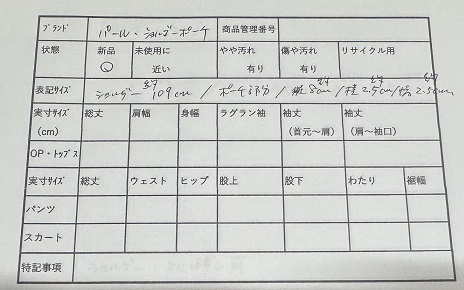 ブランド パール・ショルダーポーチ 商品管理番号
状態 新品 未使用に やや汚れ 傷や汚れ リサイクル用
○ 近い 有り 有り
表記サイズ ショルダー 約109cm / ポーチ部分 / 縦 約8cm / 約2.5cm / 約2.5cm
実寸サイズ 総丈 肩幅 身幅 ラグラン袖 袖丈 袖丈
(cm) (首元～肩) (肩～袖口)
OP・トップス
実寸サイズ 総丈 ウェスト ヒップ 股上 股下 わたり 裾幅
パンツ
スカート
特記事項